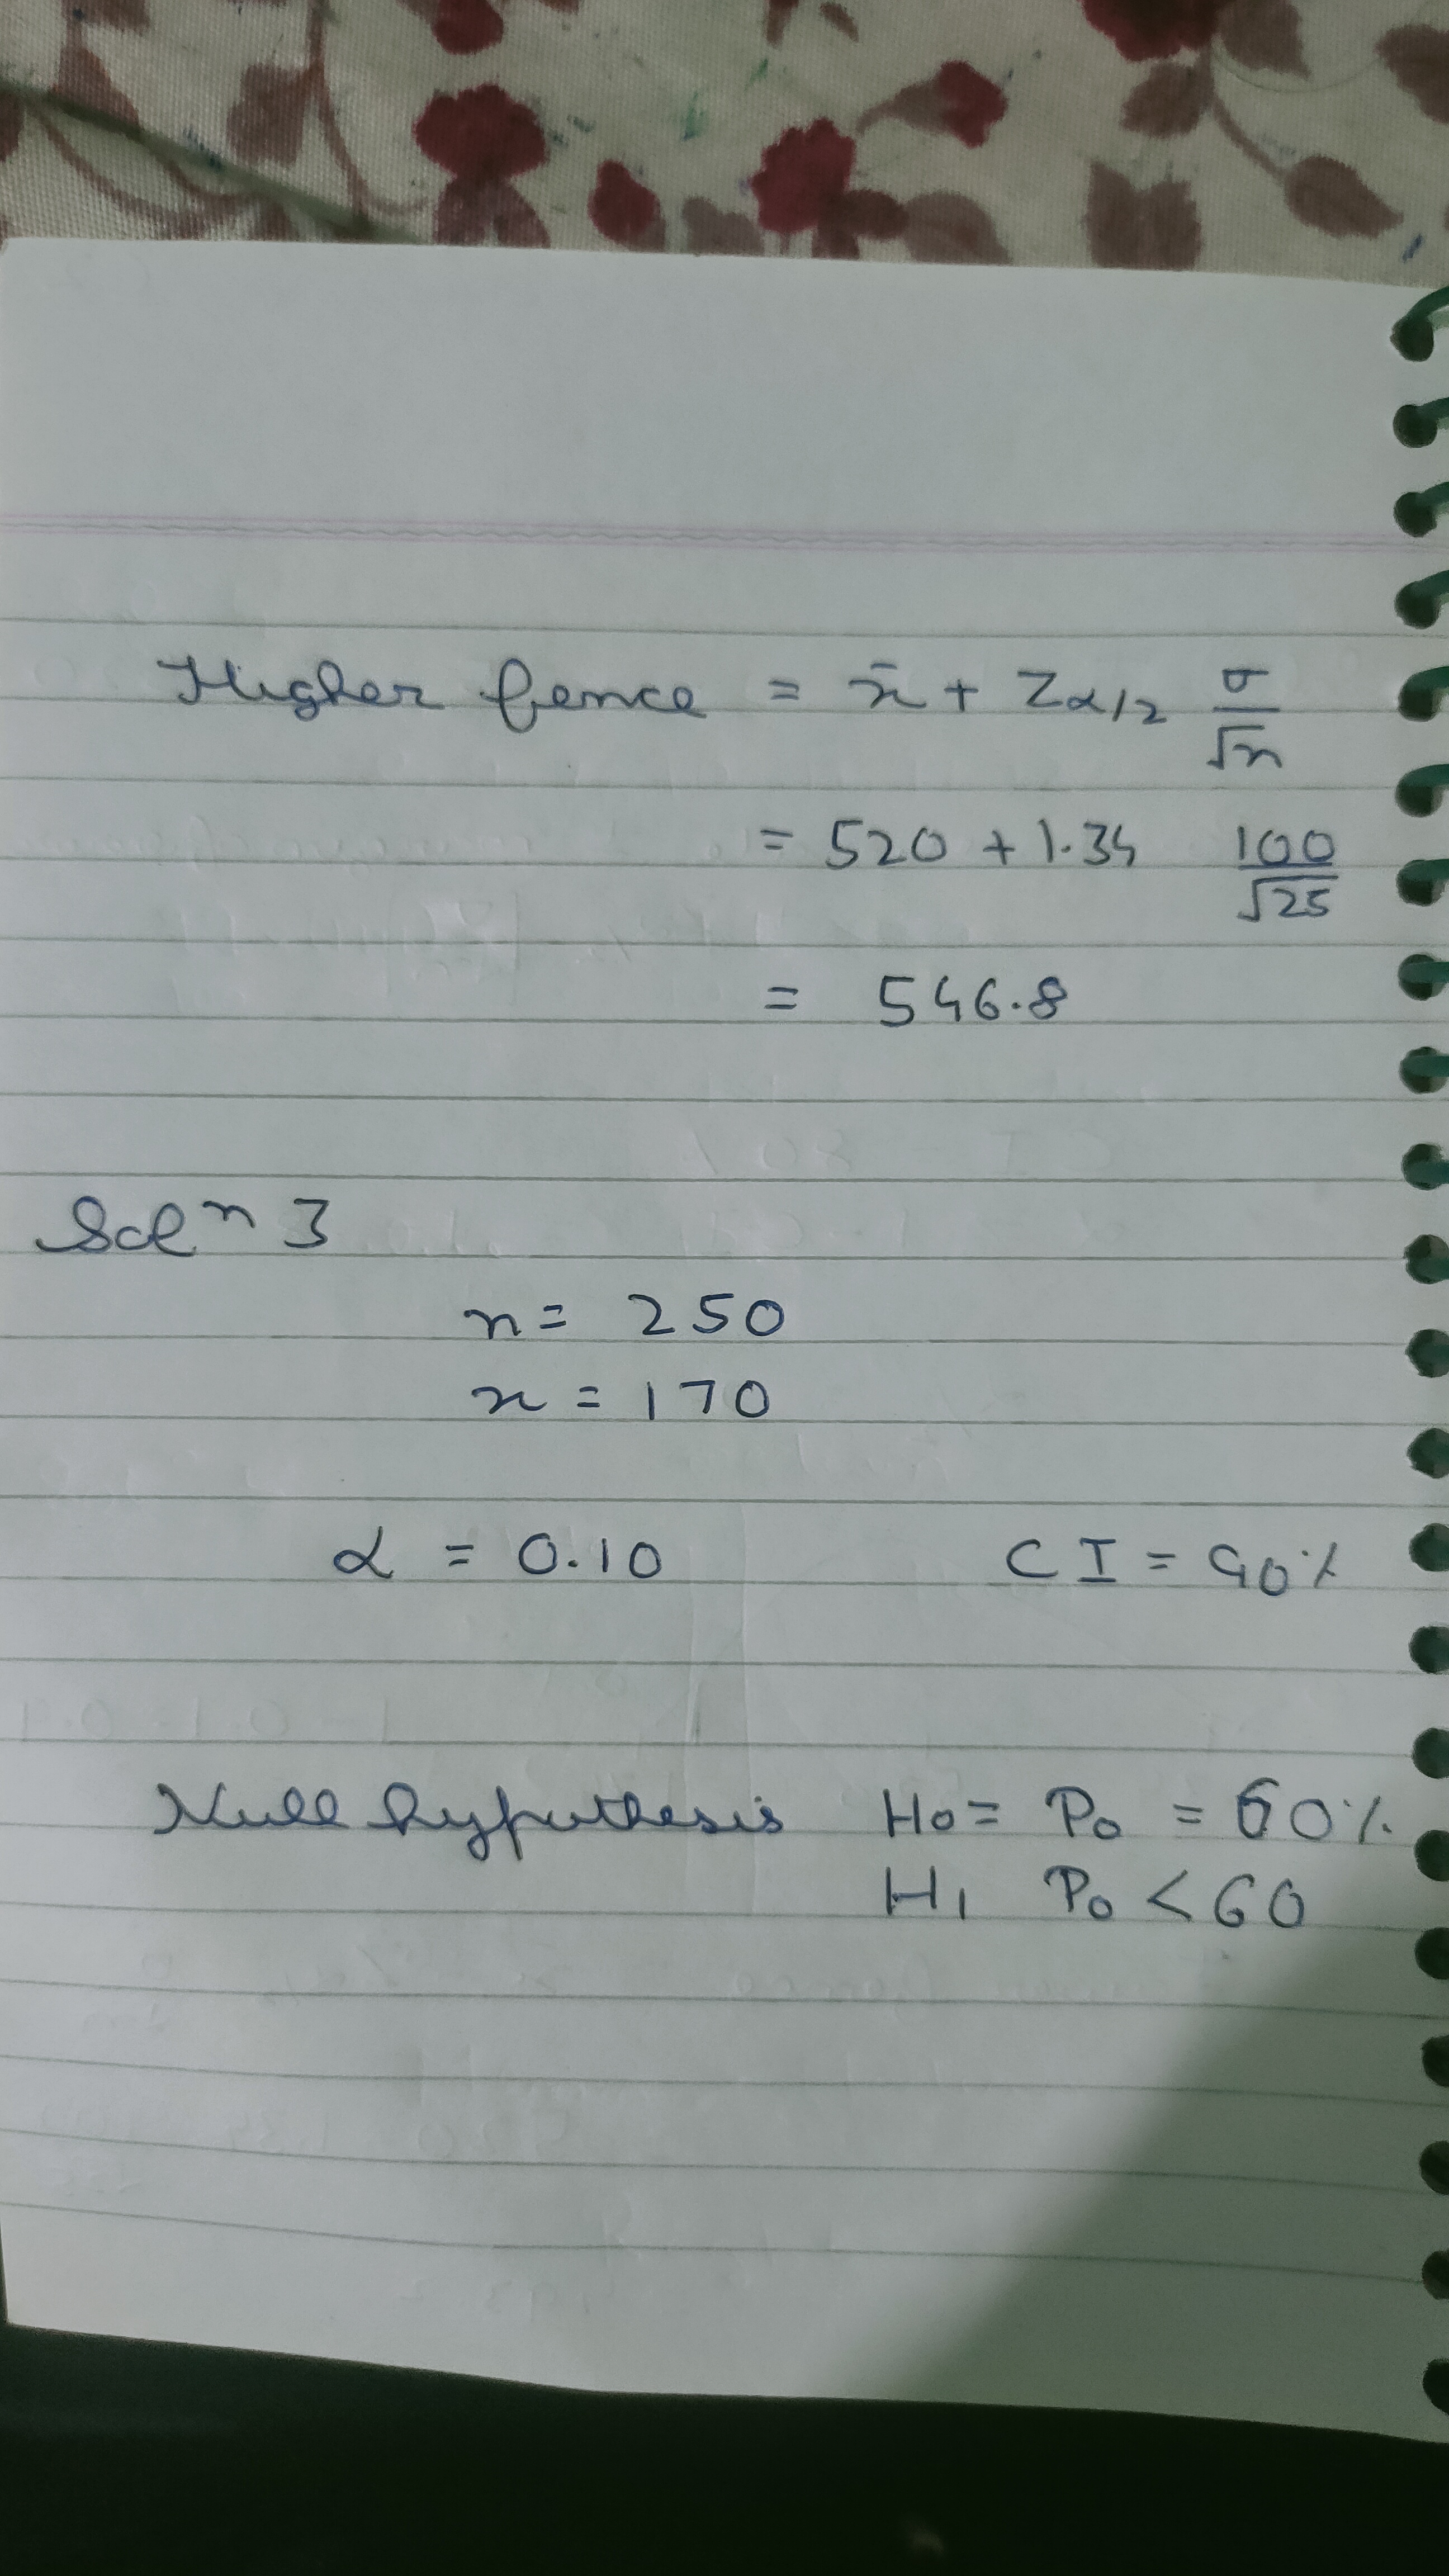 Higher fence = x̄ + Zα/2 σ/√n
= 520 + 1.34 100/√25
= 546.8
Solⁿ 3
n = 250
x = 170
α = 0.10 CI = 90%
Null hypothesis H0 = P0 = 60%
H1 P0 < 60